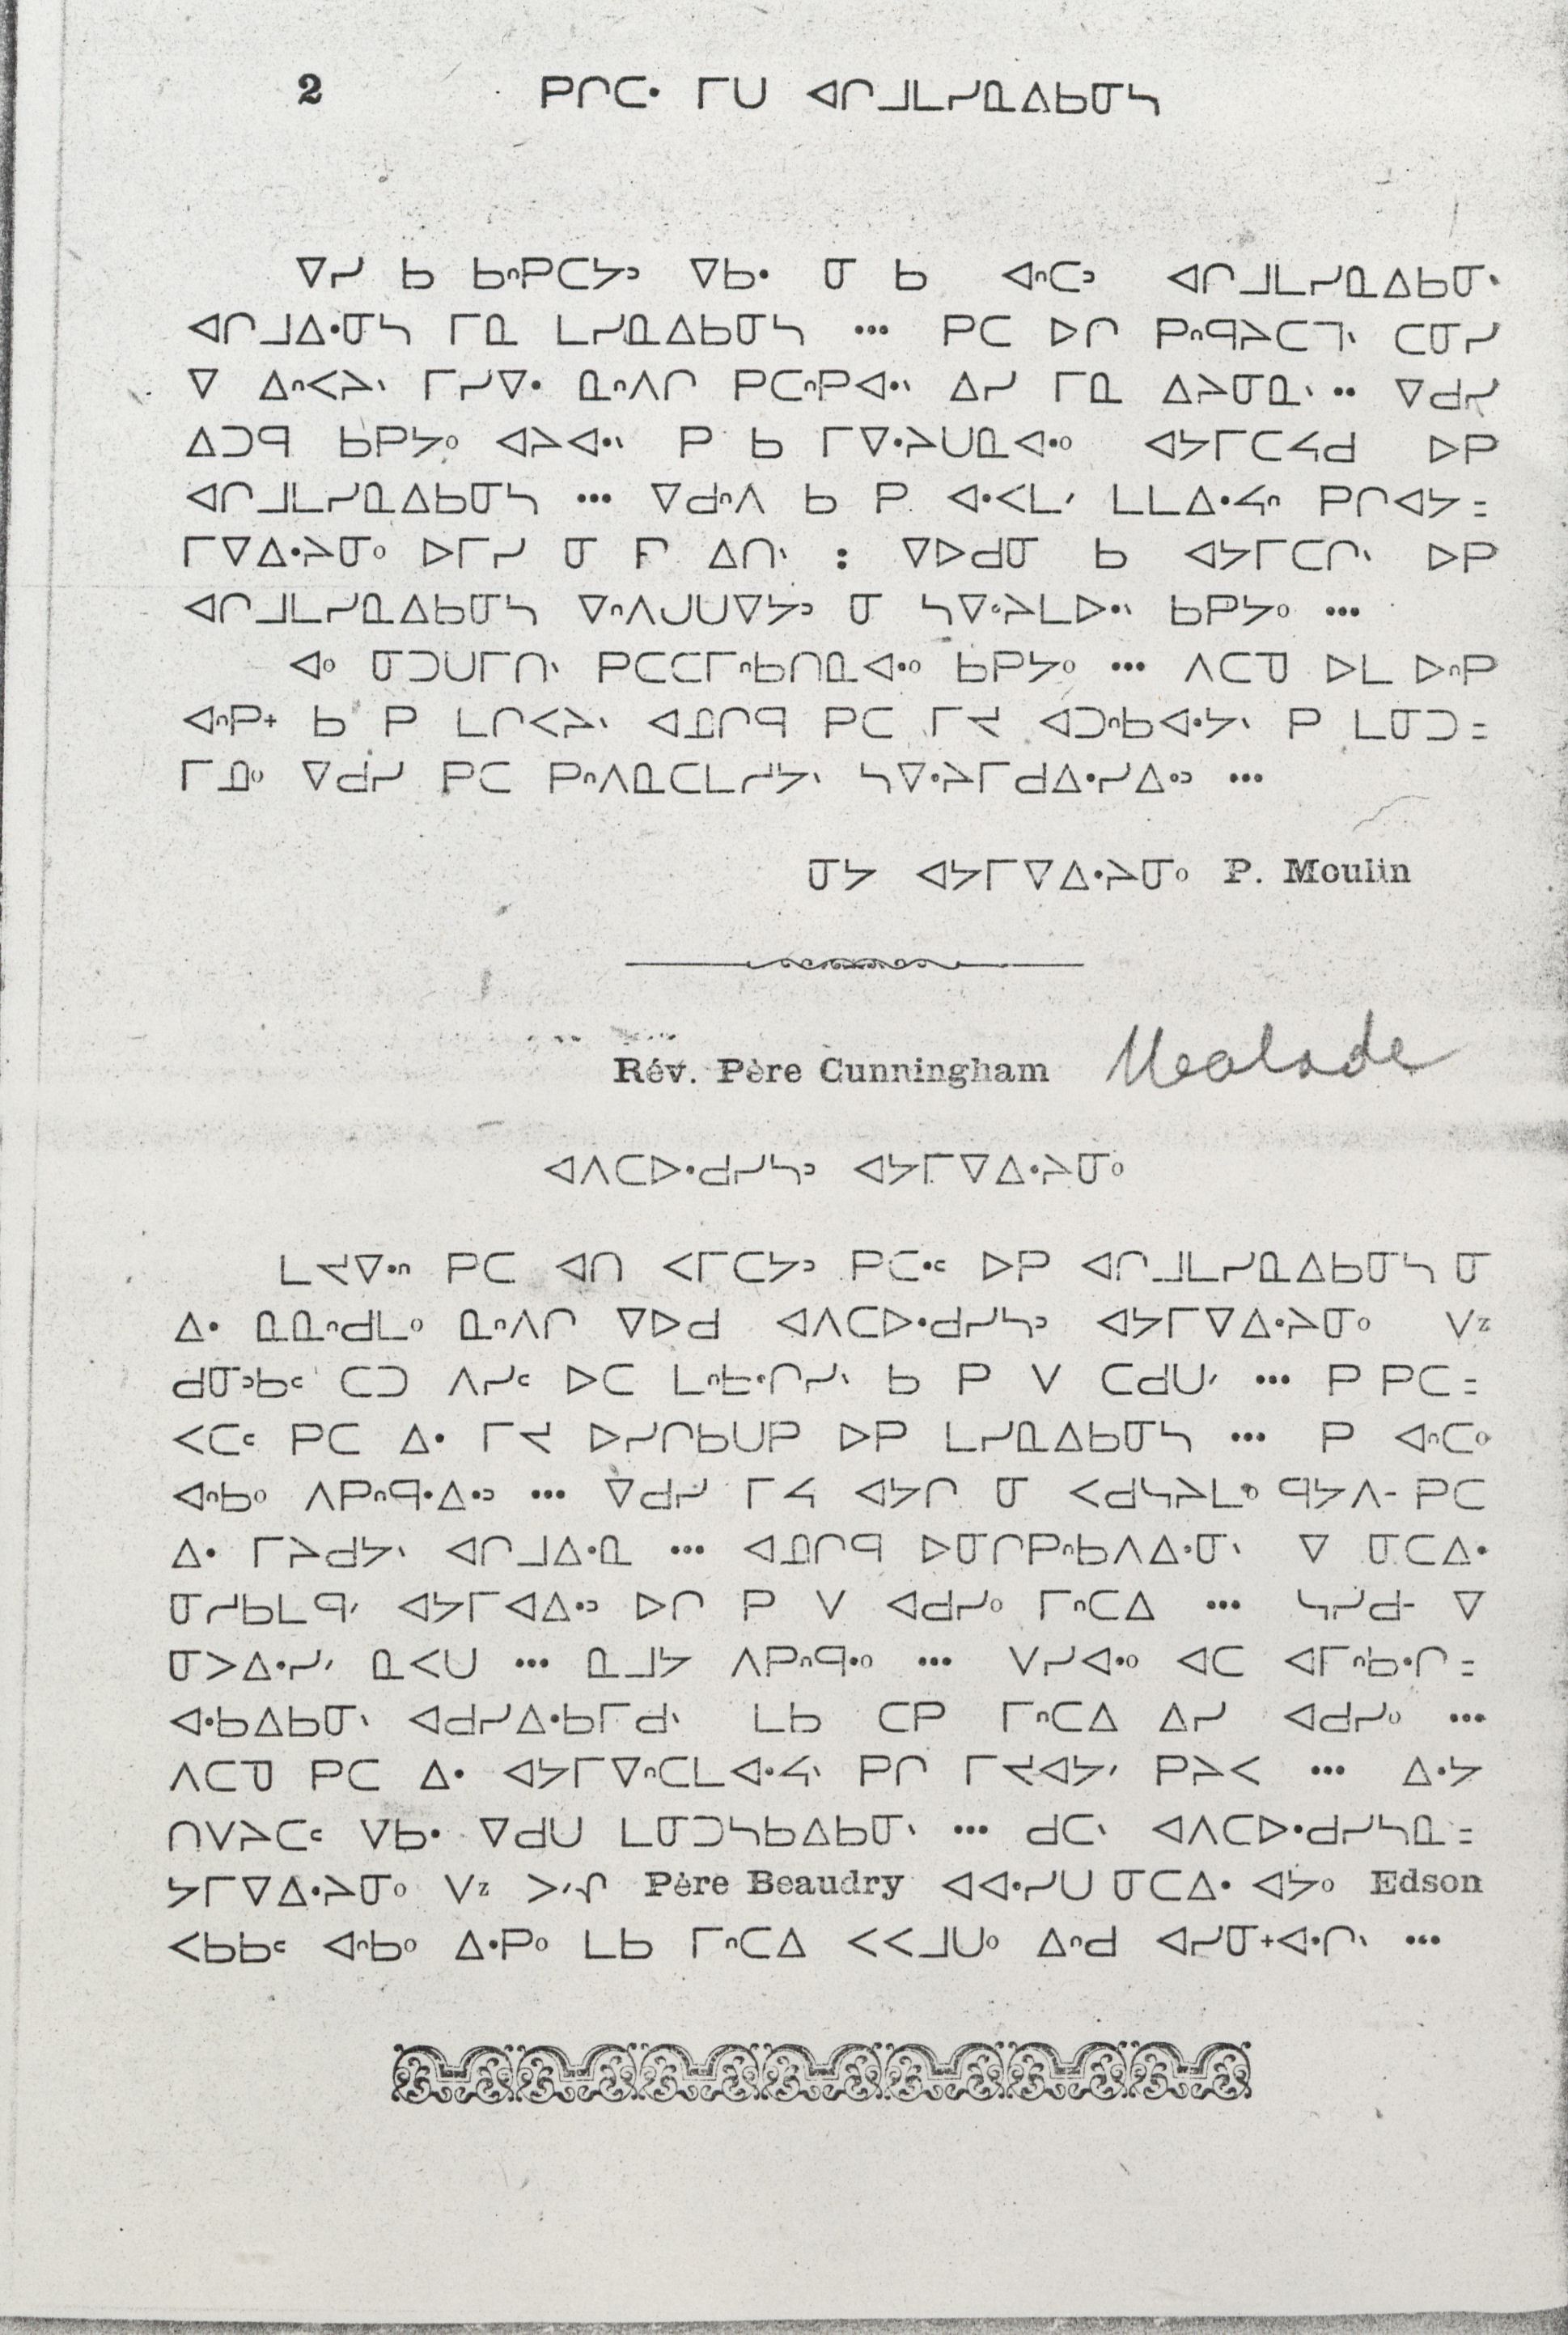 2 ᑭᒋᑕᐧ ᒥᑌ ᐊᒋᒧᒪᓯᓇᐃᑲᓂᓴ
ᐁᓯ ᑲ ᑲᐢᑭᑕᔭᐣ ᐁᑲᐧ ᓂ ᑲ ᐊᐢᑕᐣ ᐊᒋᒧᒪᓯᓇᐃᑲᓂᐠ
ᐊᒋᒧᐃᐧᓂᓴ ᒥᓇ ᒪᓯᓇᐃᑲᓂᓴ ··· ᑭᑕ ᐅᒋ ᑭᐢᑫᔨᑕᒣᐠ ᑕᓂᓯ
ᐁ ᐃᐢᐸᔨᐠ ᒥᓯᐁᐧ ᓇᐢᐱᒋ ᑭᑕᐢᑭᐊᐧᐠ ᐃᓯ ᒥᓇ ᐃᔨᓂᓇᐠ ·· ᐁᑯᓯ
ᐃᑐᑫ ᑲᑭᔭᐤ ᐊᔨᐊᐧᐠ ᑭ ᑲ ᒥᐁᐧᔨᑌᓇᐊᐧᐤ ᐊᔭᒥᑕᔦᑯ ᐅᑭ
ᐊᒋᒧᒪᓯᓇᐃᑲᓂᓴ ··· ᐁᑯᐢᐱ ᑲ ᑭ ᐊᐧᐸᒪᐟ ᒪᒪᐃᐧᔦᐢ ᑭᒋᐊᔭ =
ᒥᐁᐃᐧᔨᓂᐤ ᐅᒥᓯ ᓂ ᑭ ᐃᑎᐠ : ᐁᐅᑯᓂ ᑲ ᐊᔭᒥᑕᒋᐠ ᐅᑭ
ᐊᒋᒧᒪᓯᓇᐃᑲᓂᓴ ᐁᐢᐱᒍᑌᐁᔭᐣ ᓂ ᓴᐁᐧᔨᒪᐅᐧᐠ ᑲᑭᔭᐤ ···
ᐊᐤ ᓂᑐᑌᒥᑎᐠ ᑭᑕᑕᒥᐢᑲᑎᓇᐊᐧᐤ ᑲᑭᔭᐤ ··· ᐱᑕᓀ ᐅᒪ ᐅᐢᑭ
ᐊᐢᑭᐩ ᑲ ᑭ ᒪᒋᐸᔨᐠ ᐊᓅᒋᑫ ᑭᑕ ᒥᔪ ᐊᑐᐢᑲᐊᐧᔭᐠ ᑭ ᒪᓂᑐ =
ᒥᓅᐤ ᐁᑯᓯ ᑭᑕ ᑭᐢᐱᓇᑕᒪᓱᔭᐠ ᓴᐁᐧᔨᒥᑯᐃᐧᓯᐃᐧᐣ ···
ᓂᔭ ᐊᔭᒥᐁᐃᐧᔨᓂᐤ P. Moulin
Rév. Père Cunningham Malade
ᐊᐱᑕᐅᐧᑯᓯᓴᐣ ᐊᔭᒥᐁᐃᐧᔨᓂᐤ
ᒪᔪᐁᐧᐢ ᑭᑕ ᐊᑎ ᐸᒥᑕᔭᐣ ᑭᑕᐧᑦ ᐅᑭ ᐊᒋᒧᒪᓯᓇᐃᑲᓂᓴ ᓂ
ᐃᐧ ᓇᓇᐢᑯᒪᐤ ᓇᐢᐱᒋ ᐁᐅᑯ ᐊᐱᑕᐅᐧᑯᓯᓴᐣ ᐊᔭᒥᐁᐃᐧᔨᓂᐤ ᐯᶻ
ᑯᓂᐣᑲᑦ ᑕᑐ ᐱᓯᑦ ᐅᑕ ᒪᐢᑿᒋᓯᐠ ᑲ ᑭ ᐯ ᑕᑯᑌᐟ ··· ᑭ ᑭᑕ =
ᐸᑕᑦ ᑭᑕ ᐃᐧ ᒥᔪ ᐅᓯᒋᑲᑌᑭ ᐅᑭ ᒪᓯᓇᐃᑲᓂᓴ ··· ᑭ ᐊᐢᑕᐤ
ᐊᐢᑲᐤ ᐱᑭᐢᑫᐧᐃᐧᐣ ··· ᐁᑯᓯ ᒥᔦ ᐊᔭᒋ ᓂ ᐸᑯᓭᔨᒪᐤ ᑫᔭᐱᐨ ᑭᑕ
ᐃᐧ ᒥᔨᑯᔭᐠ ᐊᒋᒧᐃᐧᓇ ··· ᐊᓅᒋᑫ ᐅᓂᒋᑭᐢᑲᐱᐃᐧᓂᐠ ᐁ ᓂᑕᐃᐧ
ᓂᓱᑲᒪᑫᐟ ᐊᔭᒥᐊᐃᐧᐣ ᐅᒋ ᑭ ᐯ ᐊᑯᓯᐤ ᒥᐢᑕᐃ ··· ᓴᓯᑯᐨ ᐁ
ᓂᐳᐃᐧᓯᐟ ᓇᐸᑌ ··· ᓇᒧᔭ ᐱᑭᐢᑫᐧᐤ ··· ᐯᓯᐊᐧᐤ ᐊᑕ ᐊᒥᐢᑲᐧᒋ =
ᐊᐧᑲᐃᑲᓂᐠ ᐊᑯᓯᐃᐧᑲᒥᑯᐠ ᒪᑲ ᑕᑭ ᒥᐢᑕᐃ ᐃᓯ ᐊᑯᓯᐤ ···
ᐱᑕᓀ ᑭᑕ ᐃᐧ ᐊᔭᒥᐁᐢᑕᒪᐊᐧᔦᐠ ᑭᒋ ᒥᔪᐊᔭᐟ ᑭᔨᐸ ··· ᐃᐧᔭ
ᑎᐯᔨᑕᑦ ᐁᑲᐧ ᐁᑯᑌ ᒪᓂᑐᓴᑲᐃᑲᓂᐠ ··· ᑯᑕᐠ ᐊᐱᑕᐅᐧᑯᓯᓴᓇ =
ᔭᒥᐁᐃᐧᔨᓂᐤ ᐯᶻ Père Beaudry ᐊᐊᐧᓯᑌ ᓂᑕᐃᐧ ᐊᔭᐤ Edson
ᐸᑲᑲᑦ ᐊᐢᑲᐤ ᐃᐧᑭᐤ ᒪᑲ ᒥᐢᑕᐃ ᐸᐸᒧᑌᐤ ᐃᐢᑯ ᐊᓯᓂᐩᐊᐧᒋᐠ ···